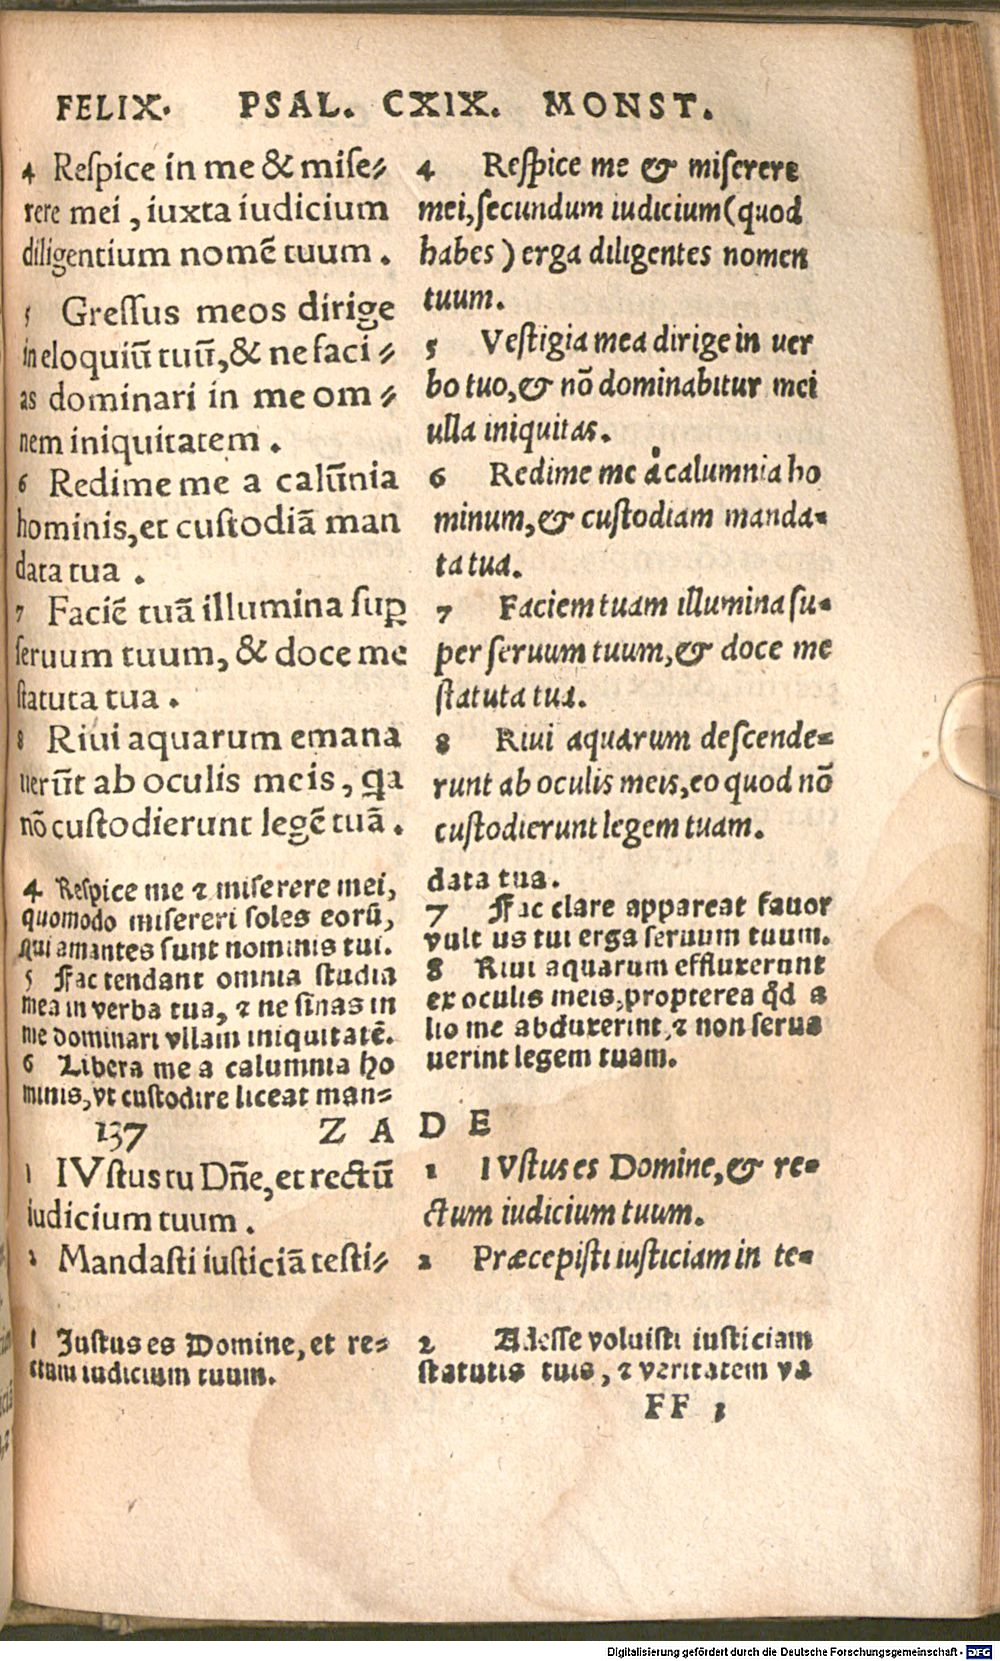 FELIX. PSAL. CXIX. MONST.
4 Reſpice in me & miſe⸗
rere mei, iuxta iudicium
diligentium nomē tuum.
5 Greſſus meos dirige
in eloquiū tuū, & ne faci⸗
as dominari in me om⸗
nem iniquitatem.
6 Redime me a calūnia
hominis, et cuſtodiā man
data tua.
7 Faciē tuā illumina ſuꝑ
ſeruum tuum, & doce me
ſtatuta tua.
8 Riui aquarum emana
uerūt ab oculis meis, qa
nō cuſtodierunt legē tuā.
4 Reſpice me & miſerere
mei, ſecundum iudicium (quod
habes) erga diligentes nomen
tuum.
5 Veſtigia mea dirige in uer
bo tuo, & nō dominabitur mei
ulla iniquitas.
6 Redime me à calumnia ho
minum, & cuſtodiam manda⸗
ta tua.
7 Faciem tuam illumina ſu⸗
per ſeruum tuum, & doce me
ſtatuta tua.
8 Riui aquarum deſcende⸗
runt ab oculis meis, eo quod nō
cuſtodierunt legem tuam.
4 Reſpice me ⁊ miſerere mei,
quomodo miſereri ſoles eorū,
qui amantes ſunt nominis tui.
5 Fac tendant omnia ſtudia
mea in verba tua, ⁊ ne ſīnas in
me dominari vllam iniquitatē.
6 Libera me a calumnia ho
minis, vt cuſtodire liceat man⸗
data tua.
7 Fac clare appareat fauor
vult us tui erga ſeruum tuum.
8 Riui aquarum effluxerunt
ex oculis meis, propterea qd a
lio me abduxerint, ⁊ non ſerua
uerint legem tuam.
137 ZADE
1 IVſtus tu Dñe, et rectū
iudicium tuum.
2 Mandaſti iuſticiā teſti⸗
1 IVſtus es Domine, & re⸗
ctum iudicium tuum.
2 Præcepiſti iuſticiam in te⸗
1 Juſtus es Domine, et re⸗
ctum iudicium tuum.
2 Adeſſe voluiſti iuſticiam
ſtatutis tuis, ⁊ veritatem va
FF 3
Digitalisierung gefördert durch die Deutsche Forschungsgemeinschaft - DFG